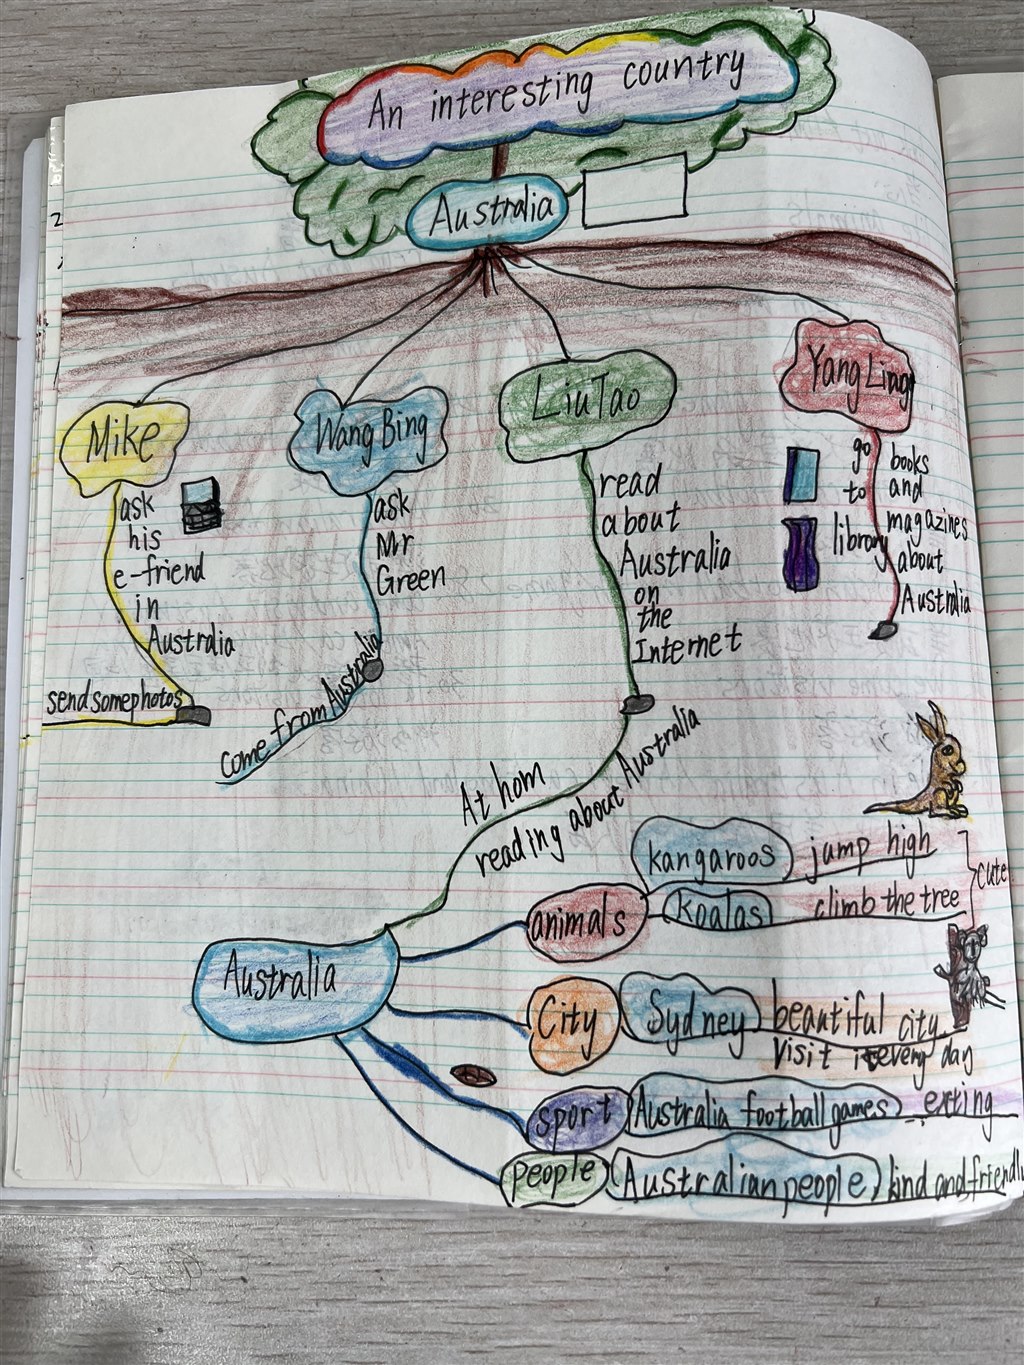 An interesting country
Australia
Mike
ask
his
e-friend
in
Australia
send some photos
Wang Bing
ask
Mr
Green
come from Australia
Liu Tao
read
about
Australia
on
the
Internet
At hom
reading about Australia
Yang Ling
go
to
library
books
and
magazines
about
Australia
Australia
animals
kangaroos jump high
koalas climb the tree
cute
City Sydney beautiful city
Visit it every day
sport Australia football games exting
people Australian people kind and friendly
2